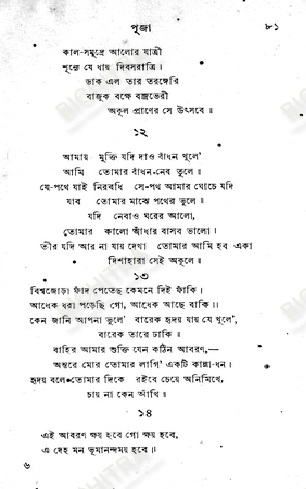 পূজা ৮১
কাল-সমুদ্রে আলোর যাত্রী
শূন্যে যে ধায় দিবসরাত্রি ।
ডাক এল তার তরঙ্গেরি
বাজুক বক্ষে বজ্রভেরী
অকূল প্রাণের সে উৎসবে ॥
১২
আমায় মুক্তি যদি দাও বাঁধন খুলে'
আমি তোমার বাঁধন-নেব তুলে ।
যে-পথে যাই নিরবধি সে-পথ আমার ঘোচে যদি
যাব তোমার মাঝে পথের ভুলে ॥
যদি নেবাও ঘরের আলো,
তোমার কালো আঁধার বাসব ভালো ।
তীর যদি আর না যায় দেখা তোমার আমি হব একা
দিশাহারা সেই অকূলে ॥
১৩
বিশ্বজোড়া ফাঁদ পেতেছ কেমনে দিই ফাঁকি ।
আধেক ধরা পড়েছি গো, আধেক আছে বাকি ॥
কেন জানি আপনা ভুলে' বারেক হৃদয় যায় যে খুলে',
বারেক তারে ঢাকি ॥
বাহির আমার শুক্তি যেন কঠিন আবরণ,—
অন্তরে মোর তোমার লাগি' একটি কান্না-ধন ।
হৃদয় বলে তোমার দিকে রইবে চেয়ে অনিমিখে,
চায় না কেন আঁখি ॥
১৪
এই আবরণ ক্ষয় হবে গো ক্ষয় হবে,
এ দেহ মন ভূমানন্দময় হবে ॥
৬